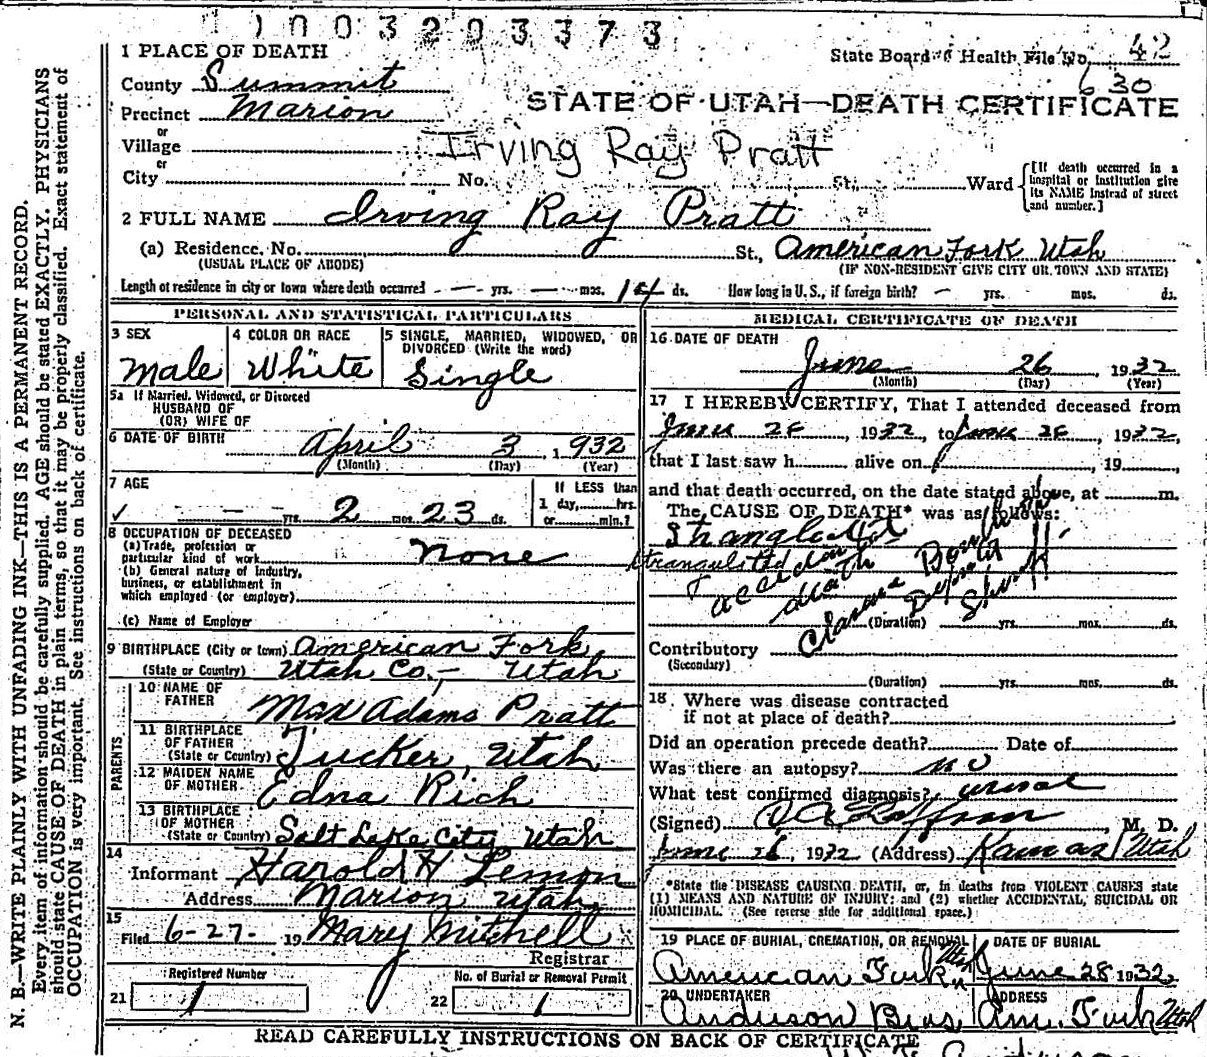 1003203373
1 PLACE OF DEATH
State Board of Health File No. 42
630
County Summit
STATE OF UTAH—DEATH CERTIFICATE
Precinct Marion
or
Village
Irving Ray Pratt
or
City No. St., Ward
[If death occurred in a
hospital or institution give
its NAME instead of street
and number.]
2 FULL NAME Irving Ray Pratt
(a) Residence. No. St., American Fork Utah
(USUAL PLACE OF ABODE) (IF NON-RESIDENT GIVE CITY OR TOWN AND STATE)
Length of residence in city or town where death occurred — yrs. — mos. 14 ds. How long in U. S., if foreign birth? — yrs. mos. ds.
PERSONAL AND STATISTICAL PARTICULARS
3 SEX
Male
4 COLOR OR RACE
White
5 SINGLE, MARRIED, WIDOWED, OR
DIVORCED (Write the word)
Single
5a If Married, Widowed, or Divorced
HUSBAND OF
(OR) WIFE OF
6 DATE OF BIRTH
April 3, 1932
(Month) (Day) (Year)
7 AGE
— yrs. 2 mos. 23 ds.
If LESS than
1 day, hrs.
or min.?
8 OCCUPATION OF DECEASED
(a) Trade, profession or
particular kind of work none
(b) General nature of Industry,
business, or establishment in
which employed (or employer)
(c) Name of Employer
9 BIRTHPLACE (City or town) American Fork,
(State or Country) Utah Co., — Utah
PARENTS
10 NAME OF
FATHER Max Adams Pratt
11 BIRTHPLACE
OF FATHER
(State or Country) Tucker, Utah
12 MAIDEN NAME
OF MOTHER Edna Rich
13 BIRTHPLACE
OF MOTHER
(State or Country) Salt Lake City, Utah
14
Informant Harold H Lemon
Address Marion Utah
15
Filed 6-27- 19 Mary Mitchell
Registrar
Registered Number
21 1
No. of Burial or Removal Permit
22 1
MEDICAL CERTIFICATE OF DEATH
16 DATE OF DEATH
June 26, 1932
(Month) (Day) (Year)
17 I HEREBY CERTIFY, That I attended deceased from
June 26, 1932, to June 26, 1932,
that I last saw h alive on , 19
and that death occurred, on the date stated above, at m.
The CAUSE OF DEATH* was as follows:
Strangulated
accident
death
Deputy
Sheriff
(Duration) yrs. mos. ds.
Contributory
(Secondary)
(Duration) yrs. mos. ds.
18. Where was disease contracted
if not at place of death?
Did an operation precede death? Date of
Was there an autopsy? no
What test confirmed diagnosis?
(Signed) M. D.
June 26, 1932 (Address) Kamas Utah
*State the DISEASE CAUSING DEATH, or, in deaths from VIOLENT CAUSES state
(1) MEANS AND NATURE OF INJURY; and (2) whether ACCIDENTAL, SUICIDAL OR
HOMICIDAL. (See reverse side for additional space.)
19 PLACE OF BURIAL, CREMATION, OR REMOVAL
American Fork Utah
DATE OF BURIAL
June 28 1932
20 UNDERTAKER
Anderson Bros
ADDRESS
Am. Fork Utah
READ CAREFULLY INSTRUCTIONS ON BACK OF CERTIFICATE
N. B.—WRITE PLAINLY WITH UNFADING INK—THIS IS A PERMANENT RECORD.
Every item of information should be carefully supplied. AGE should be stated EXACTLY. PHYSICIANS
should state CAUSE OF DEATH in plain terms, so that it may be properly classified. Exact statement of
OCCUPATION is very important. See instructions on back of certificate.